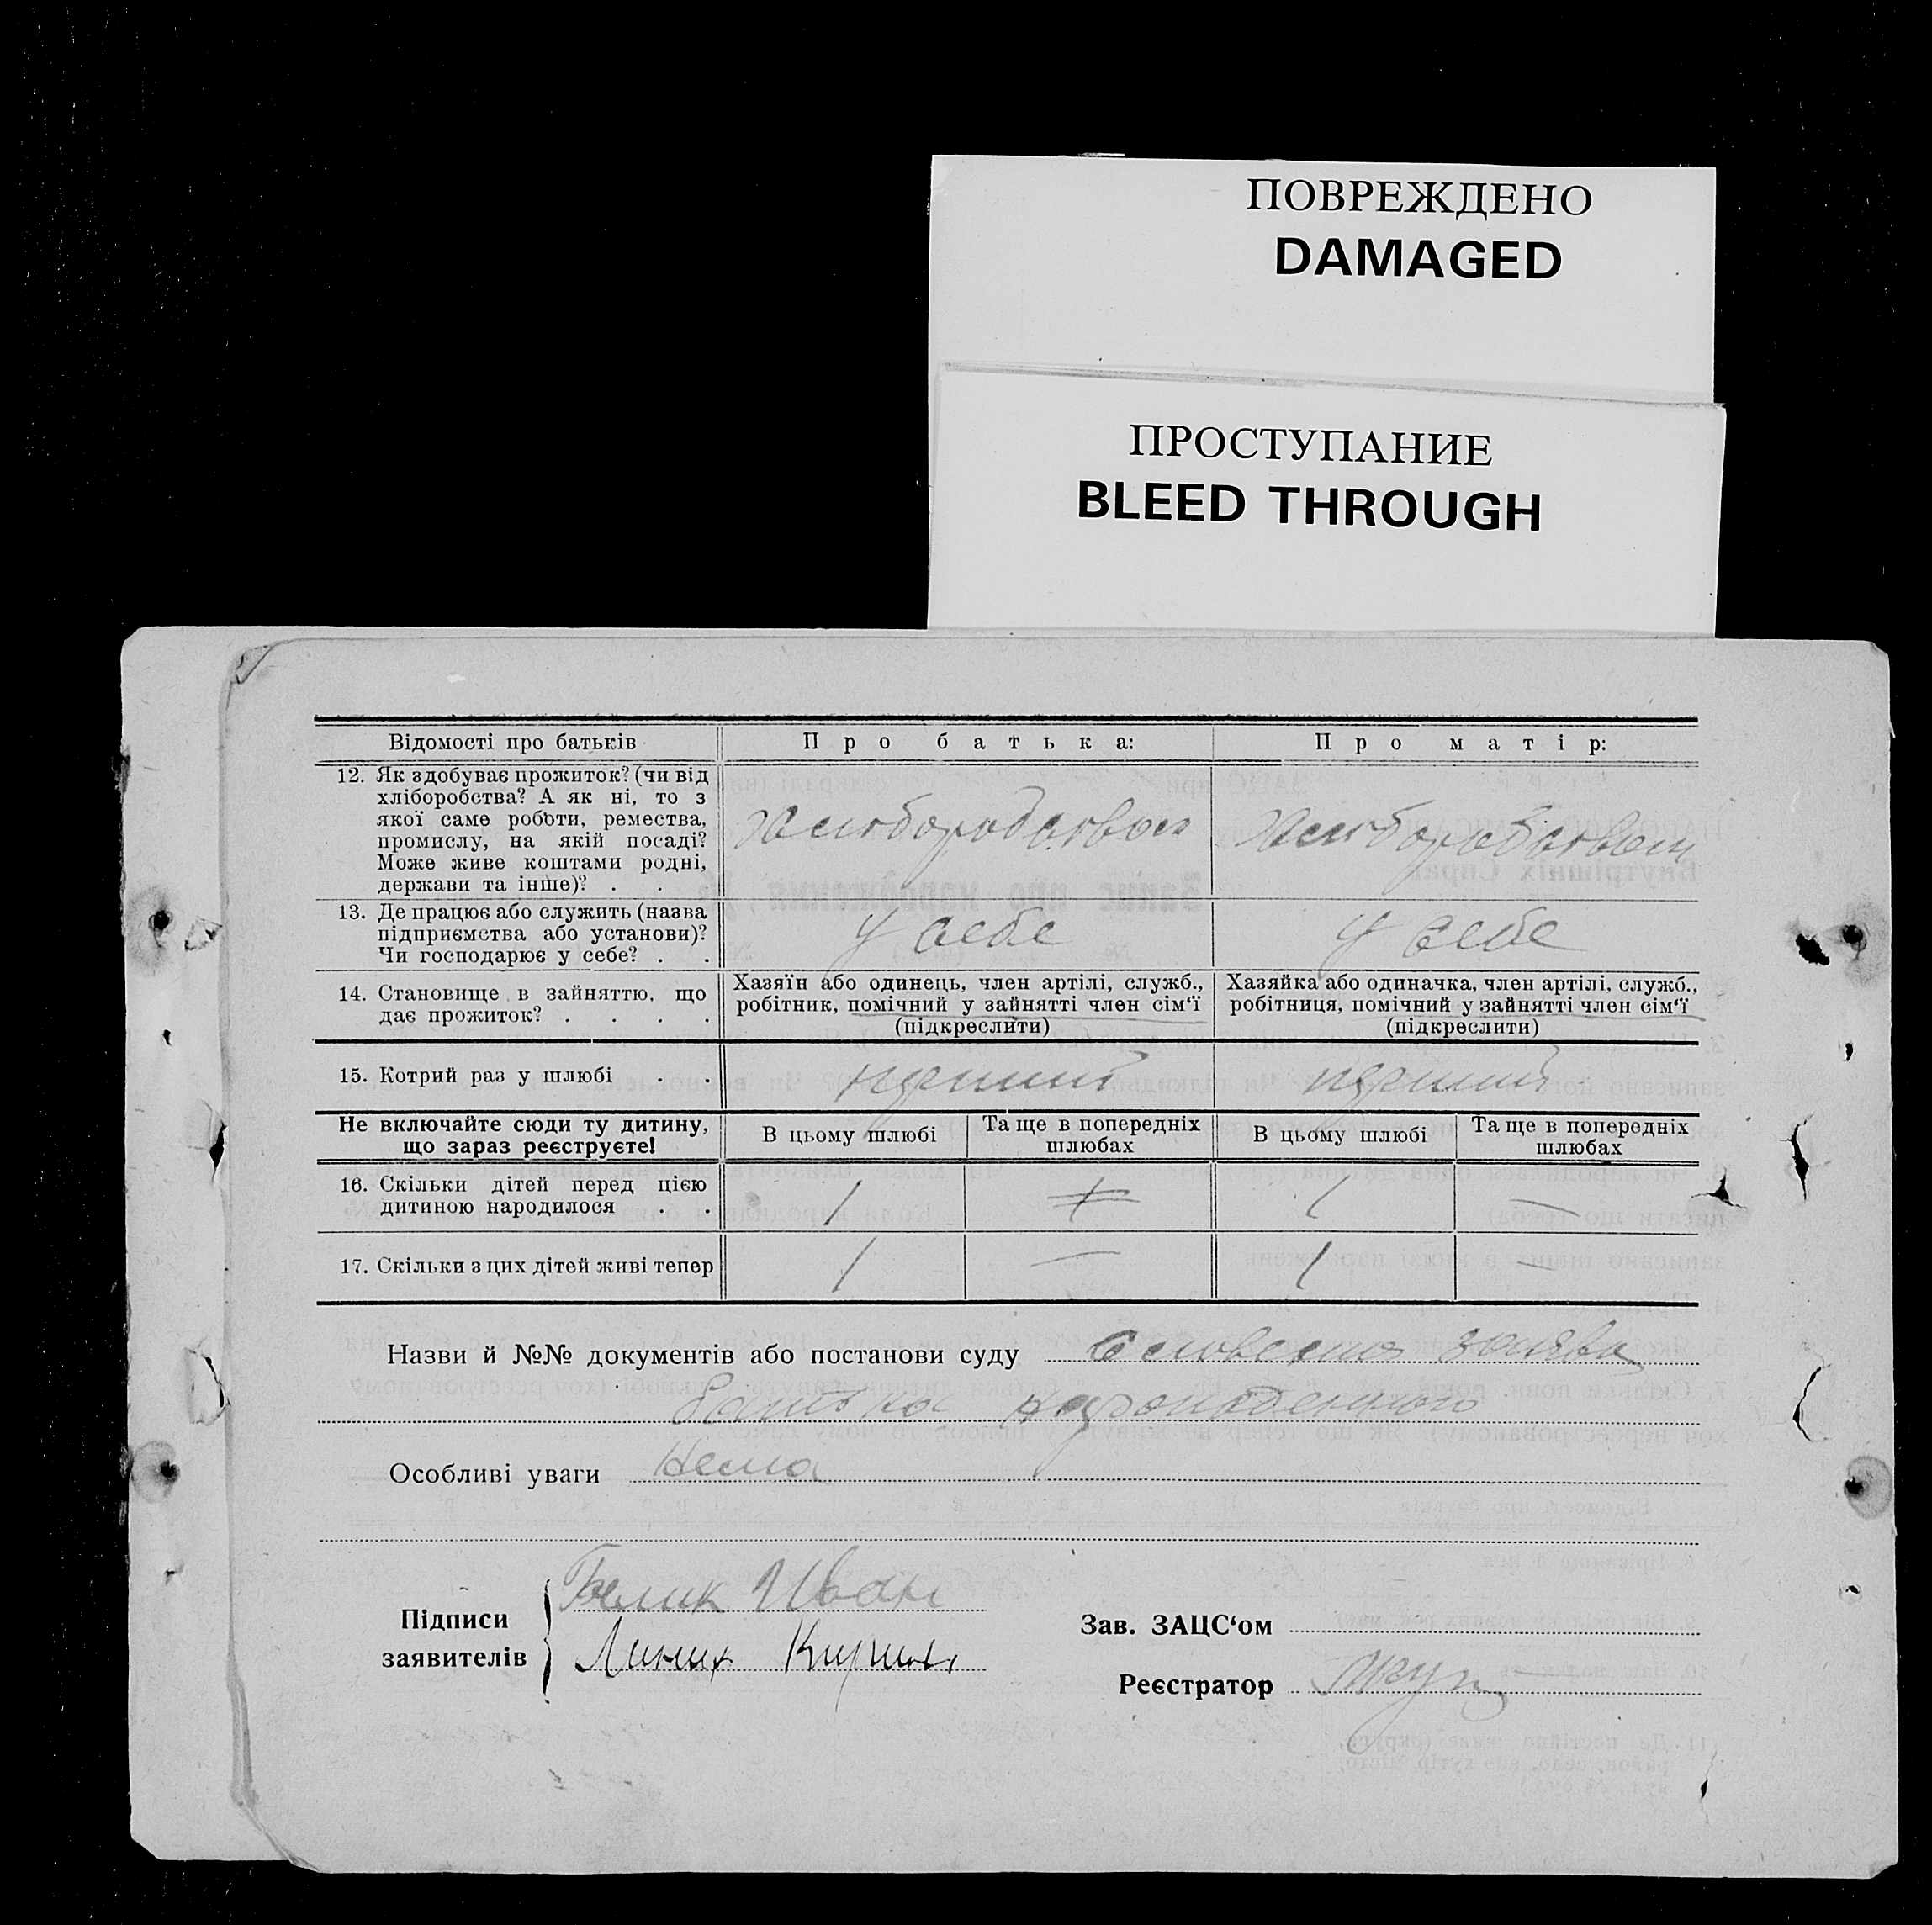 ПОВРЕЖДЕНО
DAMAGED
ПРОСТУПАНИЕ
BLEED THROUGH
Відомості про батьків
Про батька:
Про матір:
12. Як здобуває прожиток? (чи від
хліборобства? А як ні, то з
якої саме роботи, ремества,
промислу, на якій посаді?
Може живе коштами родні,
держави та інше)? . .
хлиборобством
хлиборобством
13. Де працює або служить (назва
підприємства або установи)?
Чи господарює у себе? . .
у себе
у себе
14. Становище в зайняттю, що
дає прожиток? . . . .
Хазяїн або одинець, член артілі, служб.,
робітник, помічний у зайнятті член сім‘ї
(підкреслити)
Хазяйка або одиначка, член артілі, служб.,
робітниця, помічний у зайнятті член сім‘ї
(підкреслити)
15. Котрий раз у шлюбі . .
перший
перший
Не включайте сюди ту дитину,
що зараз реєструєте!
В цьому шлюбі
Та ще в попередніх
шлюбах
В цьому шлюбі
Та ще в попередніх
шлюбах
16. Скільки дітей перед цією
дитиною народилося . .
1
1
—
17. Скільки з цих дітей живі тепер
1
—
1
—
Назви й №№ документів або постанови суду
Словесна заява
батька
Особливі уваги
Нема
Підписи
заявителів
Белик Иван
Зав. ЗАЦС‘ом
Реєстратор